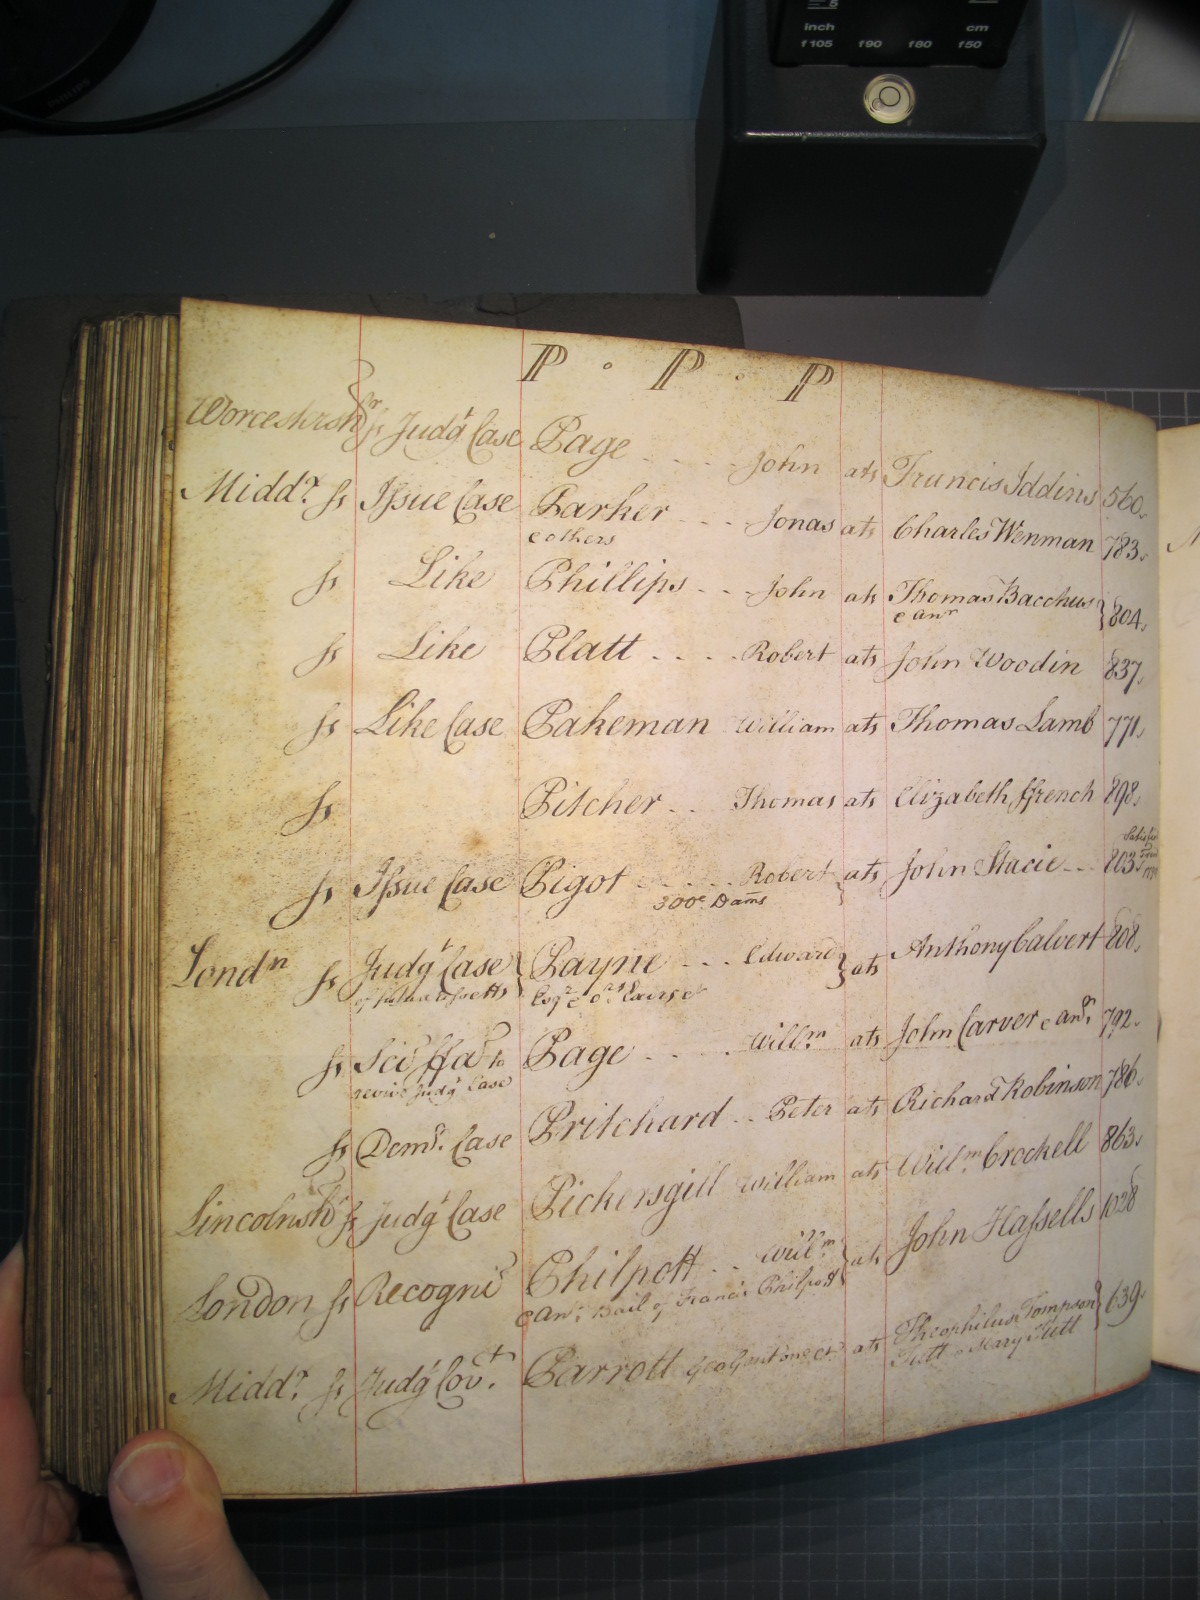 inch cm
f105 f90 f80 f50
P . P . P
Worcestersh.r ss Judgt Case Page .... John ats Francis Iddins 560.
Middx ss Issue Case Parker ... Jonas ats Charles Wenman 783.
e others
ss Like Phillips .. John ats Thomas Bacchus } 804.
e anr
ss Like Platt .... Robert ats John Woodin 837.
ss Like Case Pakeman William ats Thomas Lamb 771.
ss Pitcher .. Thomas ats Elizabeth ffrench 898.
ss Issue Case Pigot ..... Robert } ats John Stacie ... 803.
300£ Dams
Londn ss Judgt Case } Payne ... Edward } ats Anthony Calvert 808.
Esqr e
ss Sci ffa to Page .... Willm ats John Carver e anr. 792.
revive Judgt Case
ss Demr. Case Pritchard .. Peter ats Richard Robinson 786.
Lincolnshr ss Judgt Case Pickersgill William ats Willm. Crockell 863.
London ss Recogni Philpott .. Willm. } ats John Hassells 1028
e anr. Bail of Francis Philpott
Middx ss Judgt Covt. Parrott ats Theophilus Tompson } 639.
Tutt e Mary Tutt